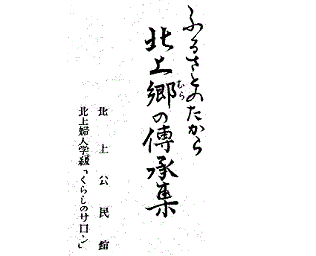 ふるさとのたから
北上郷の傳承集
むら
北上公民館
北上婦人学級「くらしのサロン」